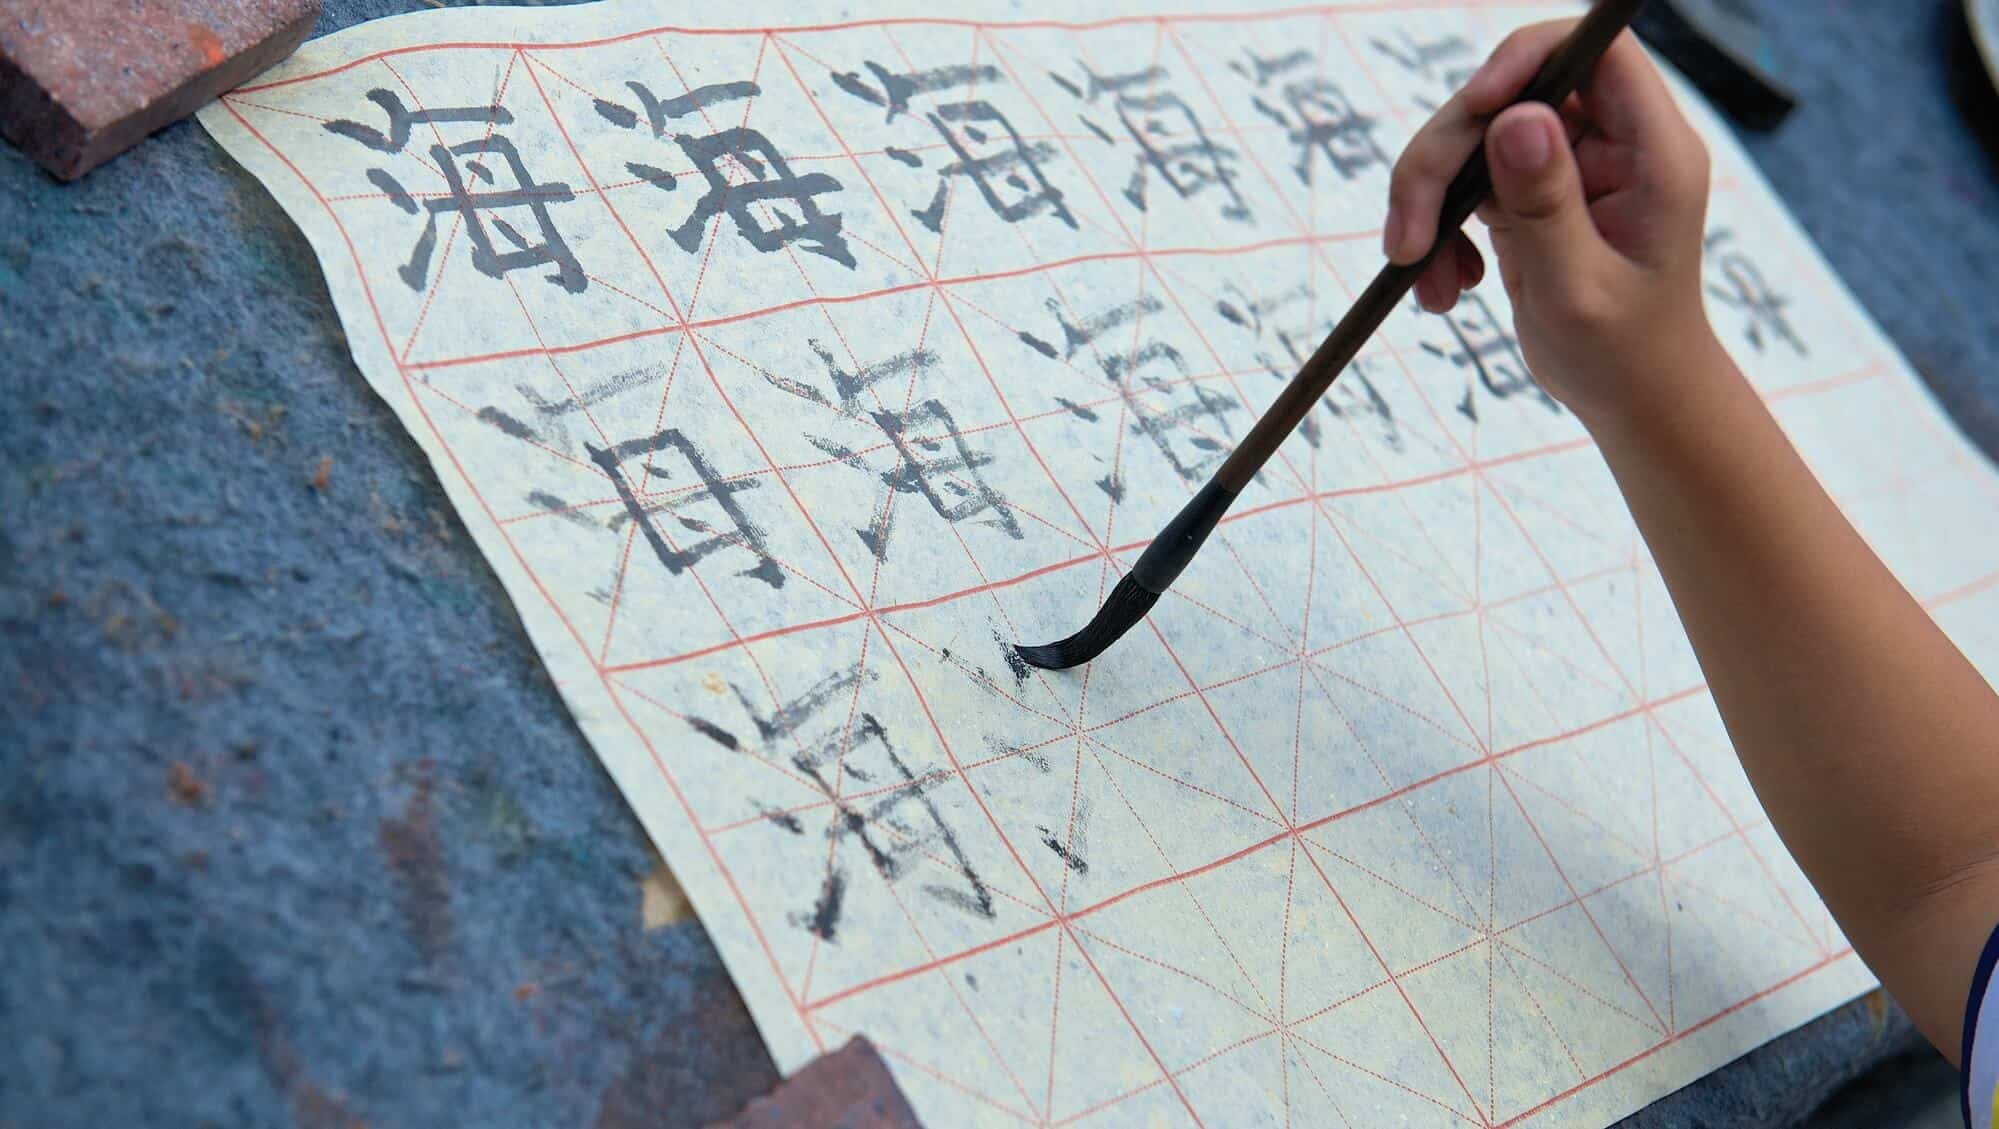 海 海 海 海 海
海 海 海 海 海
海